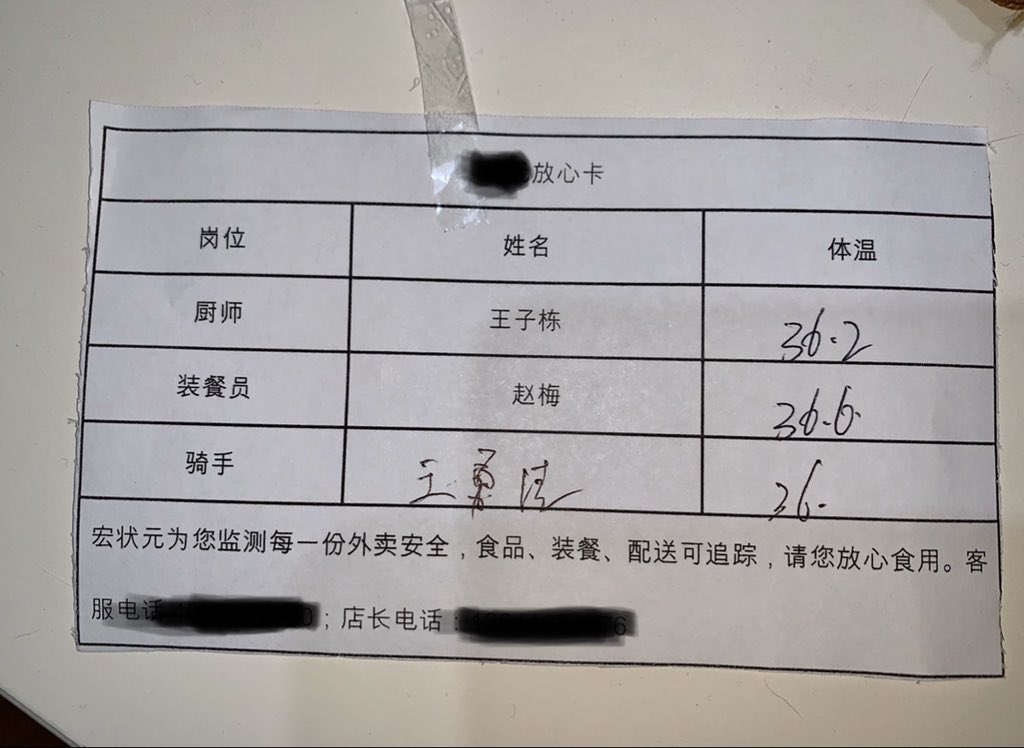 放心卡
岗位 姓名 体温
厨师 王子栋 36.2
装餐员 赵梅 36.6
骑手 王 36.
宏状元为您监测每一份外卖安全，食品、装餐、配送可追踪，请您放心食用。客
服电话 0；店长电话：76